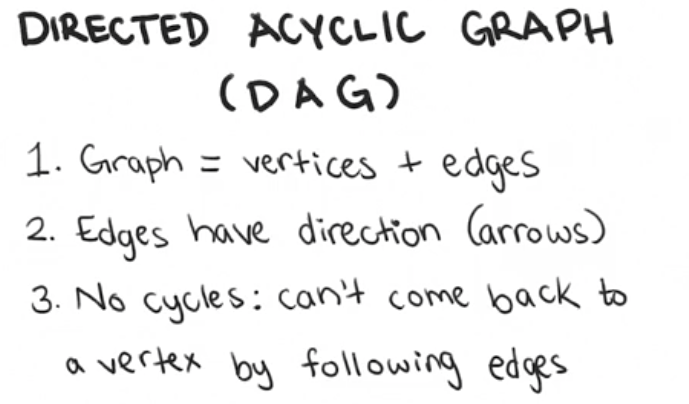 DIRECTED ACYCLIC GRAPH
(DAG)
1. Graph = vertices + edges
2. Edges have direction (arrows)
3. No cycles: can't come back to
a vertex by following edges